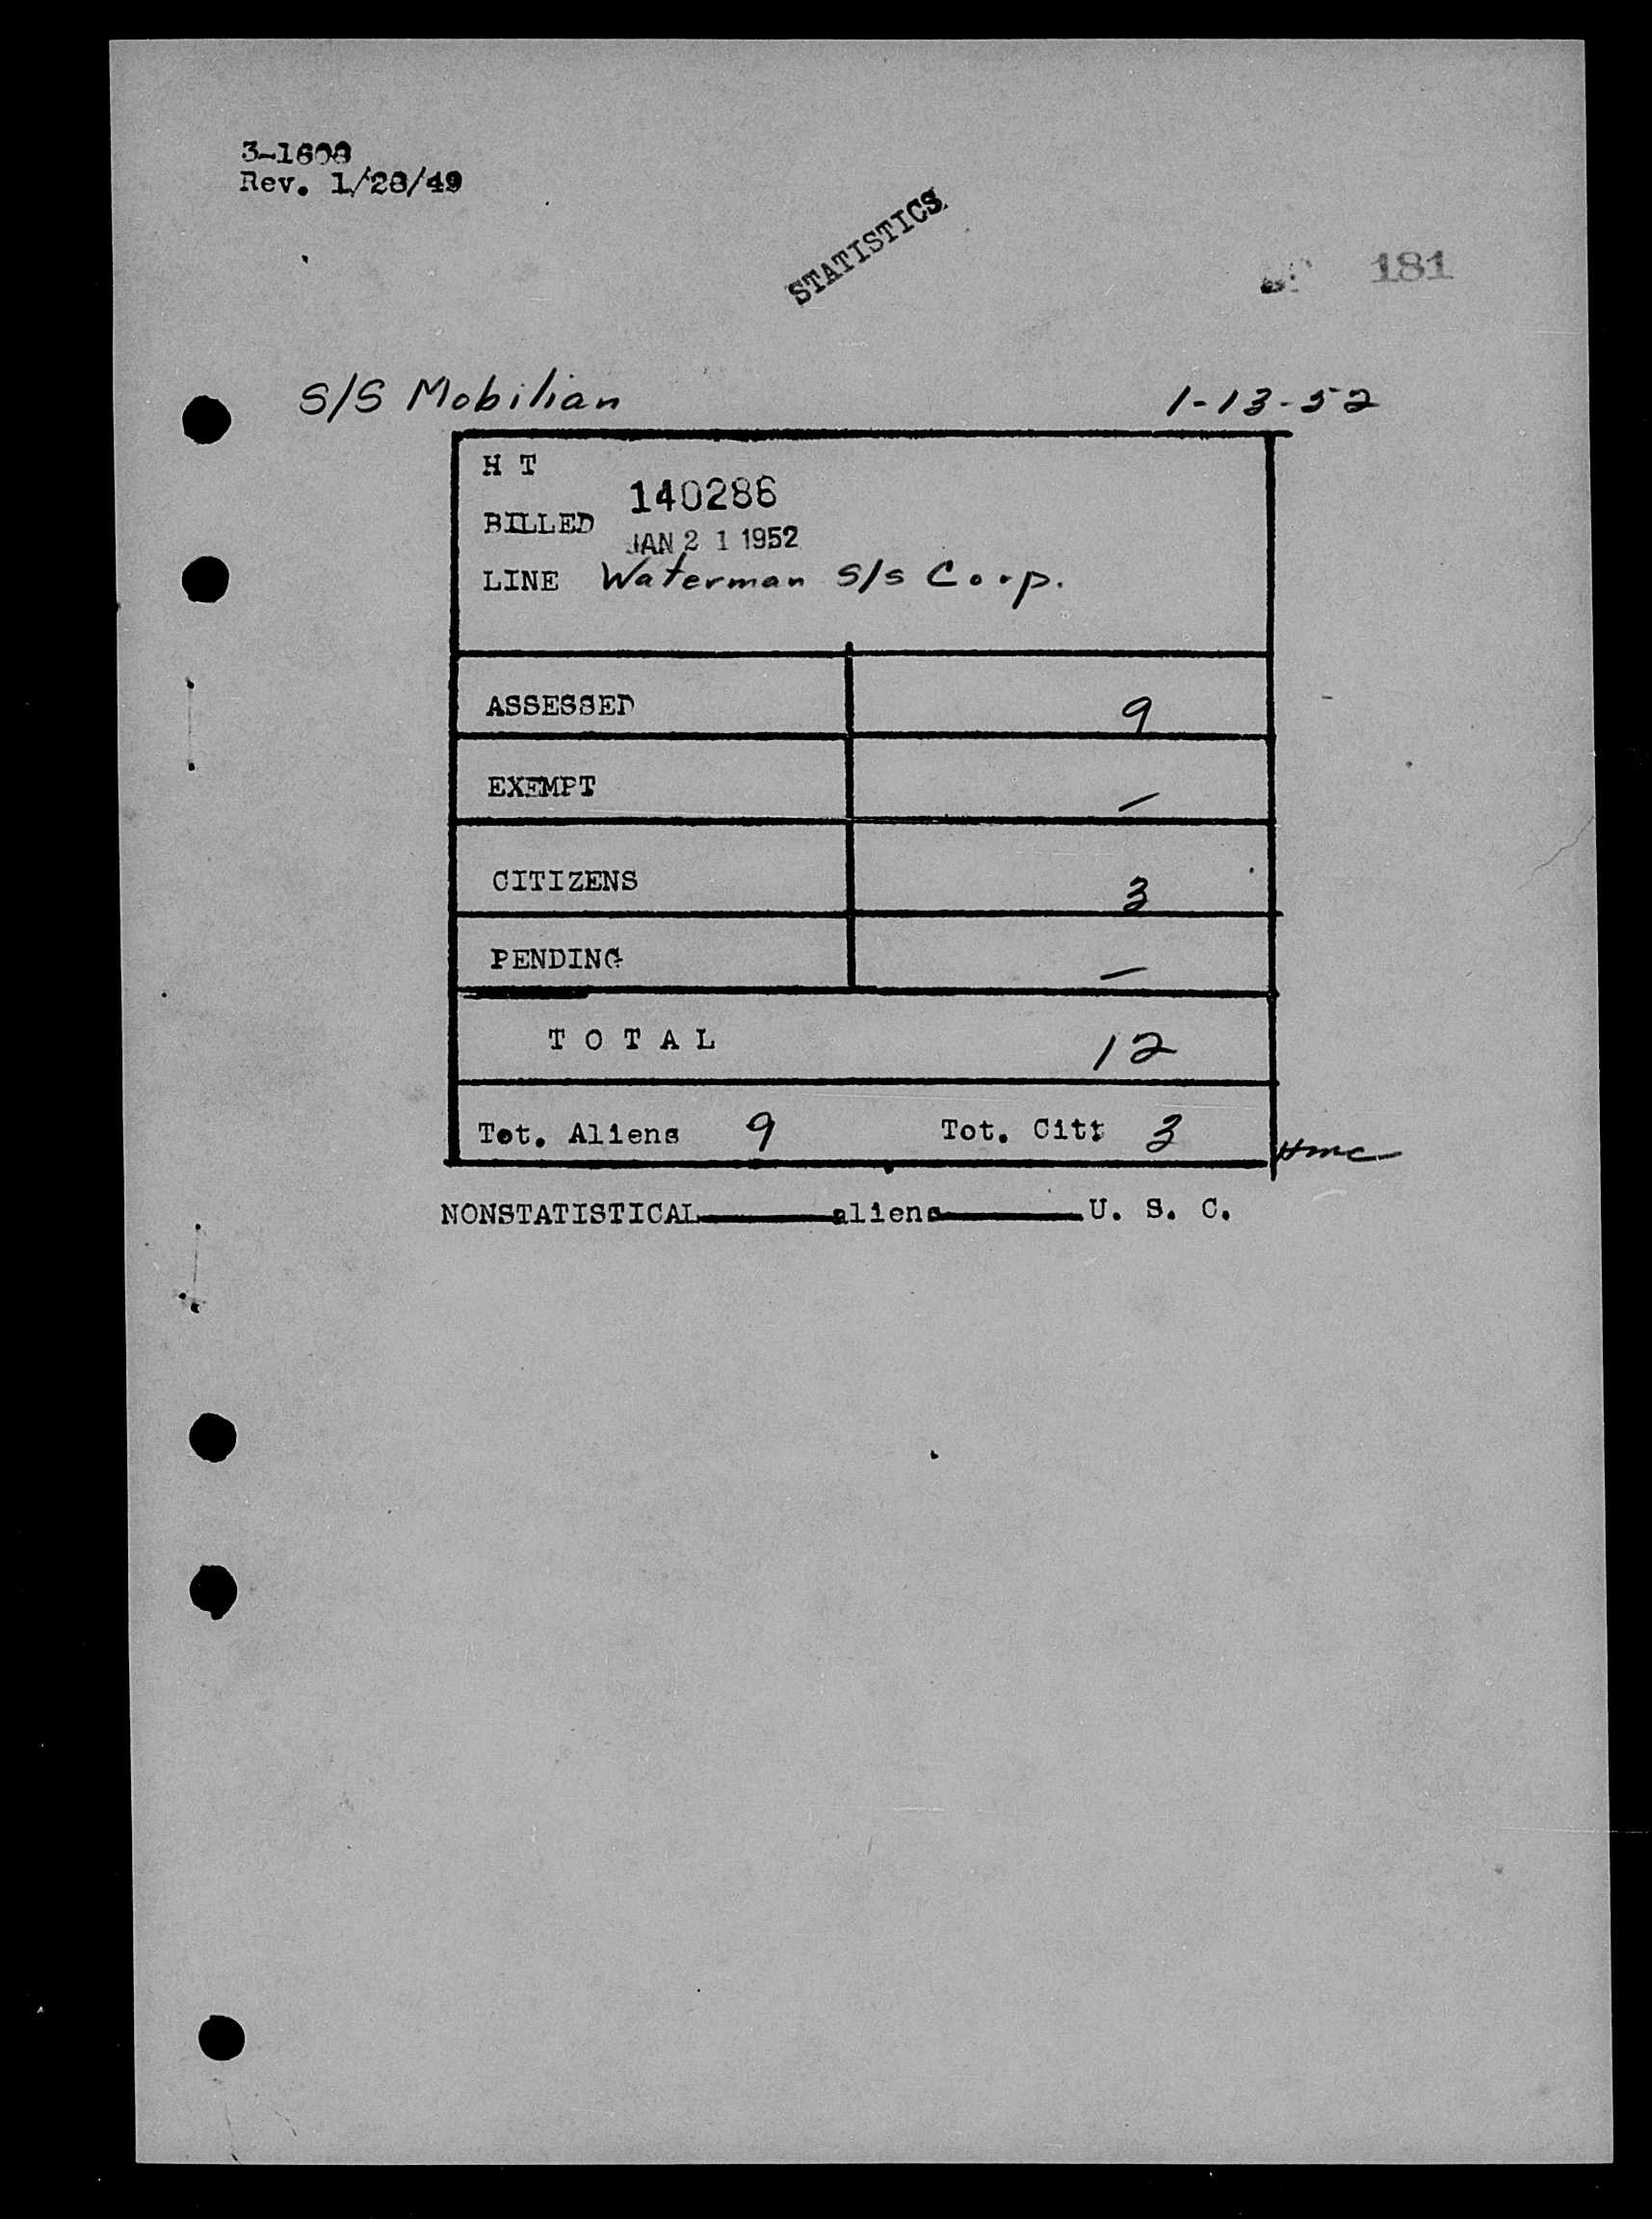 3-1608
Rev. 1/28/49
STATISTICS
181
S/S Mobilian 1-13-52
H T
140286
BILLED
JAN 21 1952
LINE Waterman S/S Corp.
ASSESSED 9
EXEMPT —
CITIZENS 3
PENDING —
T O T A L 12
Tot. Aliens 9 Tot. Citz 3
Hmc
NONSTATISTICAL______aliens______U. S. C.